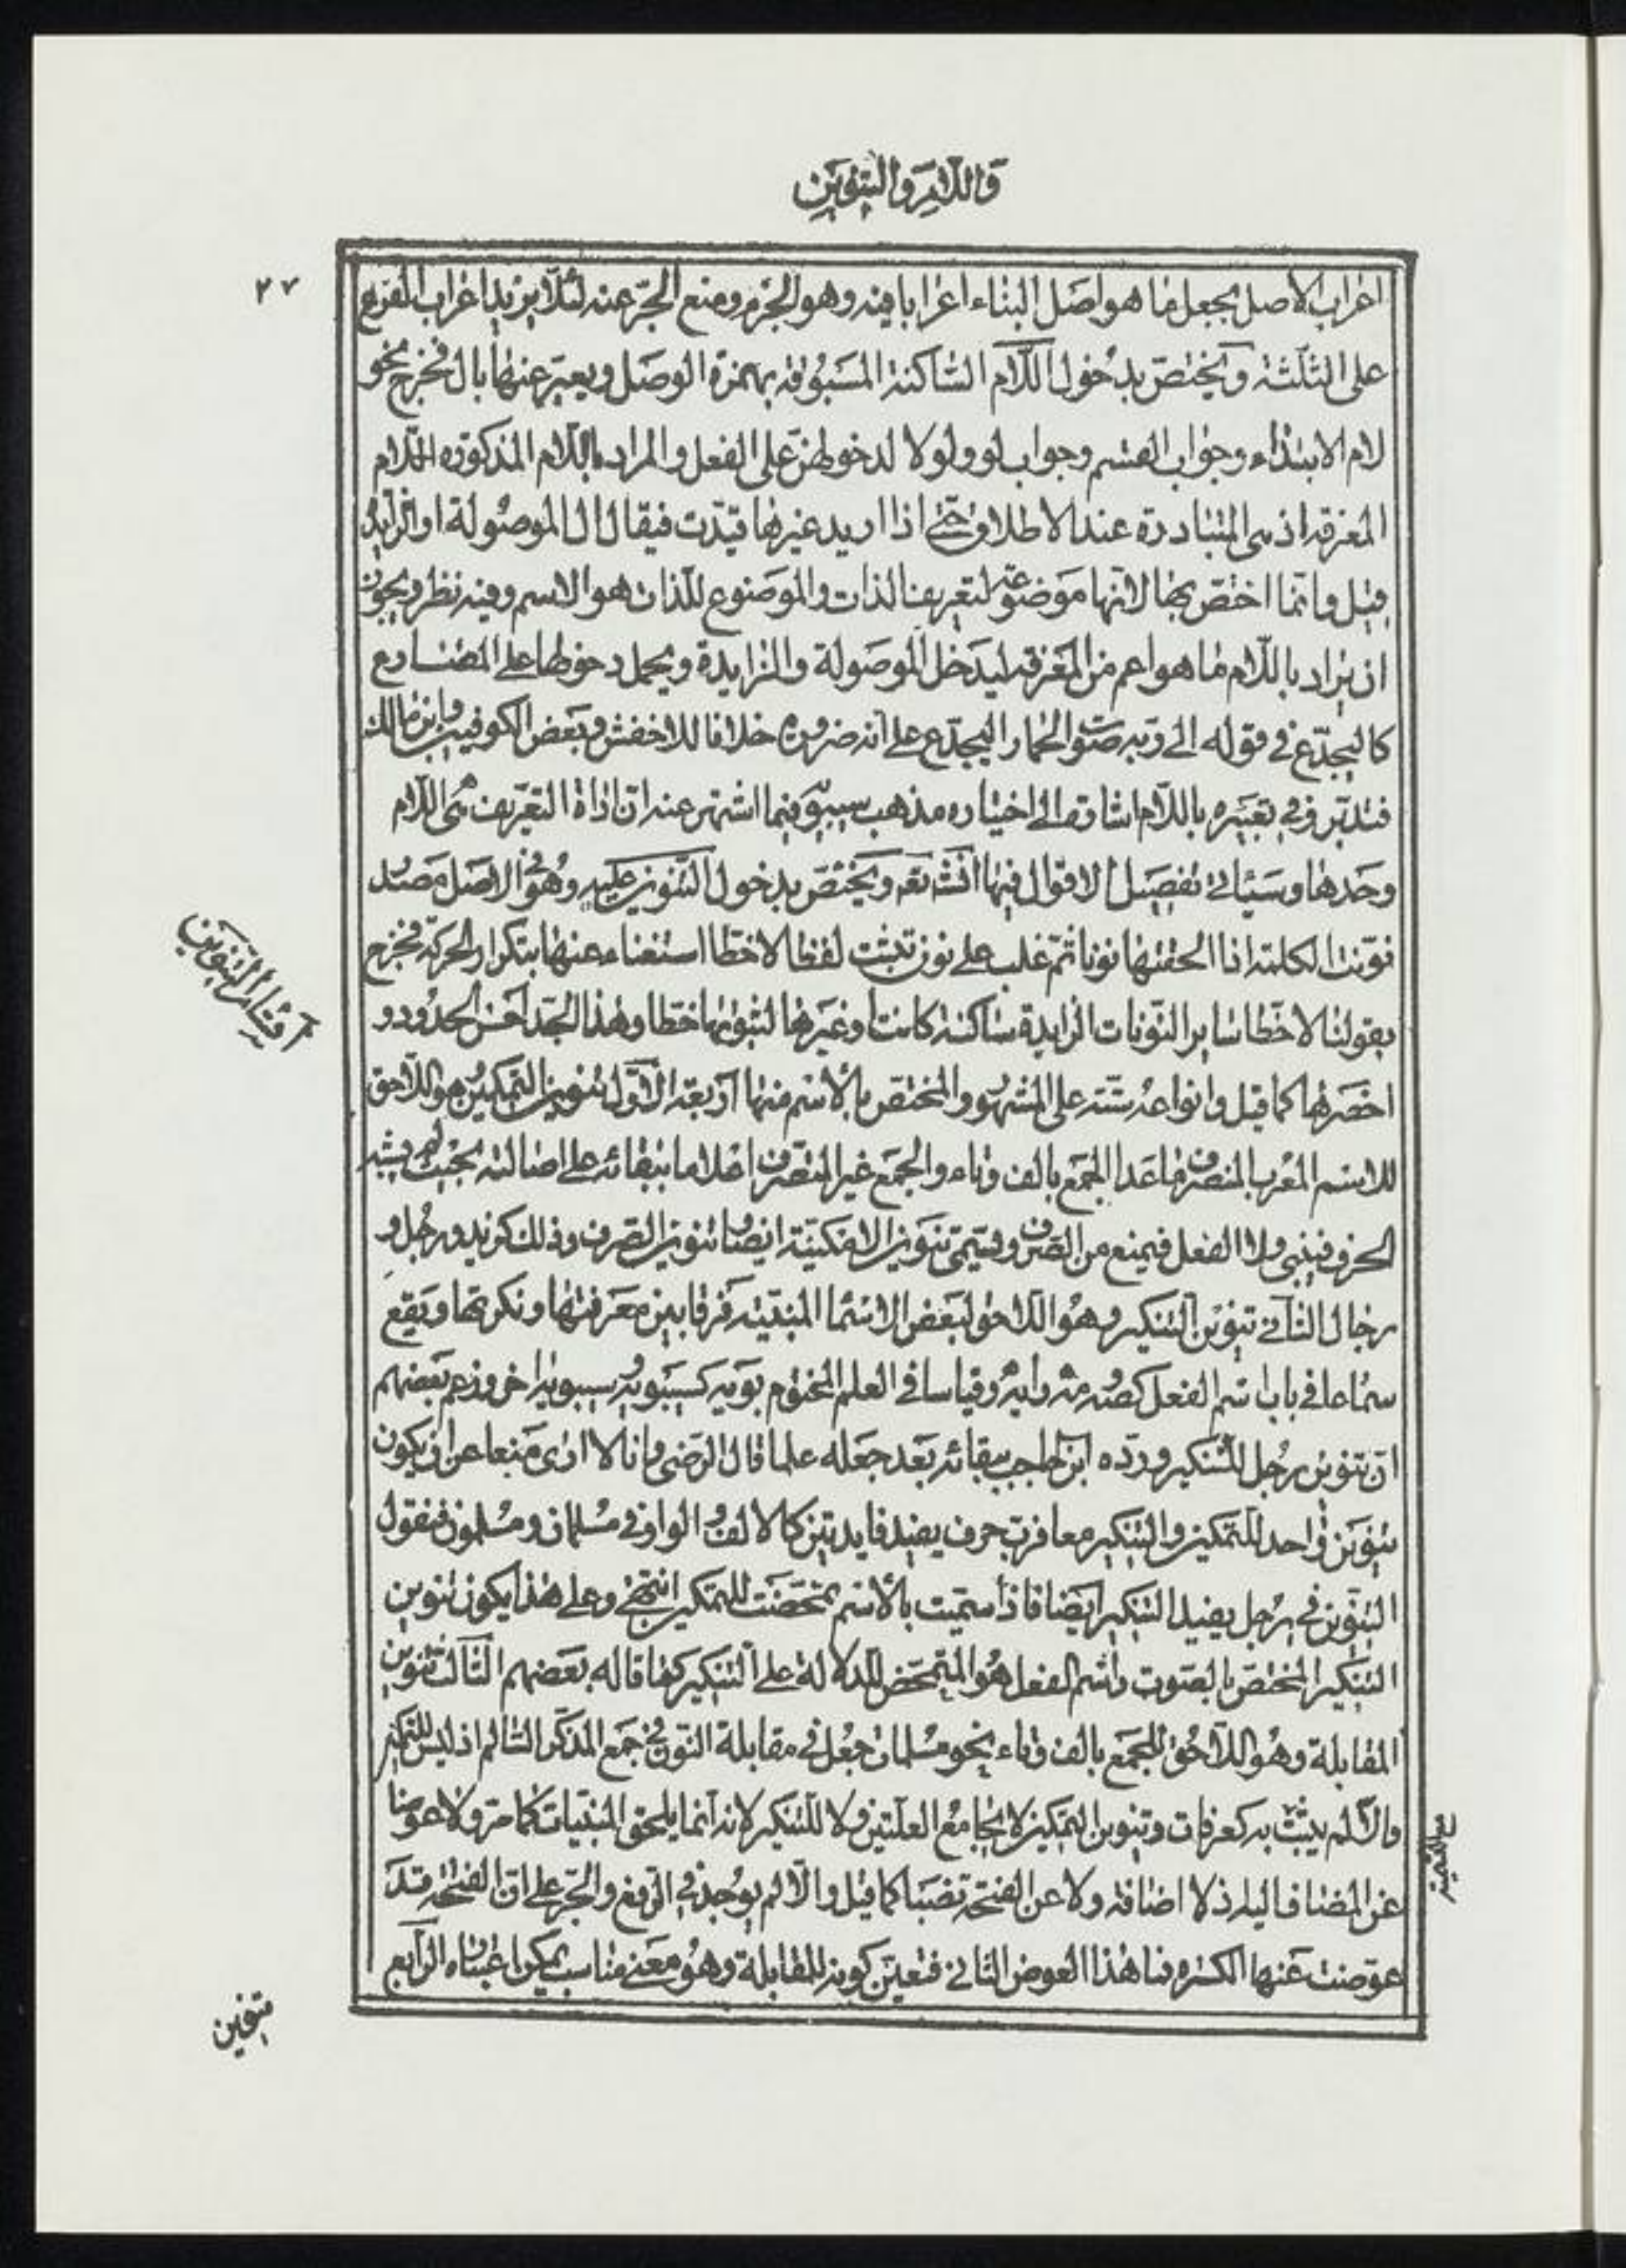 واللام والتنوين
٢٧
اعراب الاصل بجعل ما هو اصل البناء اعرابا فيه وهو الجزم ومنع الجر عنه لئلا يزيد اعراب الفرع
على الثلثة ويختص بدخول اللام الساكنة المسبوقه بهمزة الوصل ويعبر عنها بال فخرج نحو
لام الابتداء وجواب القسم وجواب لو ولولا لدخولهن على الفعل والمراد باللام المذكوره اللام
المعرفه اذ هى المتبادرة عند الاطلاق حتى اذا اريد غيرها قيدت فيقال ال الموصولة او الزايدة
قيل وانما اختص بها لانها موضوعة لتعريف الذات والموضوع للذات هو الاسم وفيه نظر ويجوز
ان يراد باللام ما هو اعم من المعرفه ليدخل الموصولة والزايدة ويحمل دخولها على المضارع
كاليجدع في قوله الى ربه صوت الحمار اليجدع على انه ضرورة خلافا للاخفش وبعض الكوفيين وابن مالك
فتدبر وفي تعبيره باللام اشارة الى اختياره مذهب سيبويه فيما اشتهر عنه ان اداة التعريف هى اللام
وحدها وسيأتي تفصيل الاقوال فيها انشاء الله تعالى ويختص بدخول التنوين عليه وهو في الاصل مصدر
نونت الكلمة اذا الحقتها نونا ثم غلب على نون تثبت لفظا لا خطا استغناء عنها بتكرار الحركة فخرج
اقسام التنوين
بقولنا لا خطا ساير النونات الزايدة ساكنة كانت او غيرها لثبوتها خطا وهذا الحد احسن الحدود و
اخصرها كما قيل وانواعه ستة على المشهور والمختص بالاسم منها اربعة الاول تنوين التمكين هو اللاحق
للاسم المعرب المنصرف ما عدا الجمع بالف وتاء والجمع غير المنصرف اعلاما ببقائه على اصالته بحيث لم يشبه
الحرف فيبنى ولا الفعل فيمنع من الصرف ويسمى تنوين الامكنية ايضا وتنوين الصرف وذلك كزيد ورجل و
رجال الثاني تنوين التنكير وهو اللاحق لبعض الاسما المبنية فرقا بين معرفتها ونكرتها ويقع
سماعا في باب اسم الفعل كصه ومه وايه وقياسا في العلم المختوم بويه كسيبويه وسيبويه اخر وزعم بعضهم
ان تنوين رجل للتنكير ورده ابن الحاجب ببقائه بعد جعله علما قال الرضي وانا لا ارى منعا من ان يكون
تنوين واحد للتمكين والتنكير معا فرب حرف يفيد فايدتين كالالف والواو في مسلمان ومسلمون فنقول
التنوين في رجل يفيد التنكير ايضا فاذا سميت بالاسم تمحضت للتمكين انتهى وعلى هذا يكون تنوين
التنكير المختص بالصوت واسم الفعل هو المتمحض للدلالة على التنكير كما قاله بعضهم الثالث تنوين
المقابلة وهو اللاحق للجمع بالف وتاء نحو مسلمات جعل في مقابلة النون في جمع المذكر السالم اذ ليس للتمكين
والا لم يثبت به كعرفات وتنوين التمكين لا يجامع العلتين ولا للتنكير لانه انما يلحق المبنيات كما مر ولا عوضا
عن المضاف اليه اذ لا اضافة ولا عن الفتحة نصبا كما قيل والا لم يوجد في الرفع والجر على ان الفتحة قد
عوضت عنها الكسره فما هذا العوض الثاني فتعين كونه للمقابلة وهو معنى مناسب يمكن اعتباره الرابع
تنوين